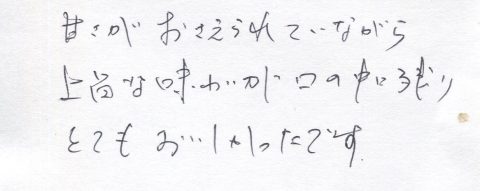 甘さが おさえられていながら
上品な味わいが口の中に残り
とても おいしかったです